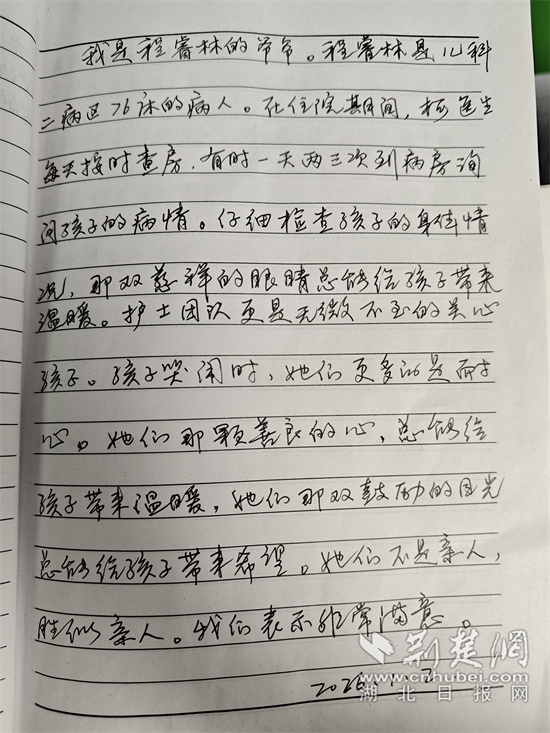 我是程睿林的爷爷。程睿林是儿科
二病区76床的病人。在住院期间，杨医生
每天按时查房，有时一天两三次到病房询
问孩子的病情。仔细检查孩子的身体情
况，那双慈祥的眼睛总能给孩子带来
温暖。护士团队更是无微不至的关心
孩子。孩子哭闹时，她们更多的是耐
心。她们那颗善良的心，总能给
孩子带来温暖，她们那双鼓励的目光
总能给孩子带来希望。她们不是亲人，
胜似亲人。我们表示非常满意。
2026.1.2
荆楚网
www.cnhubei.com
湖北日报网